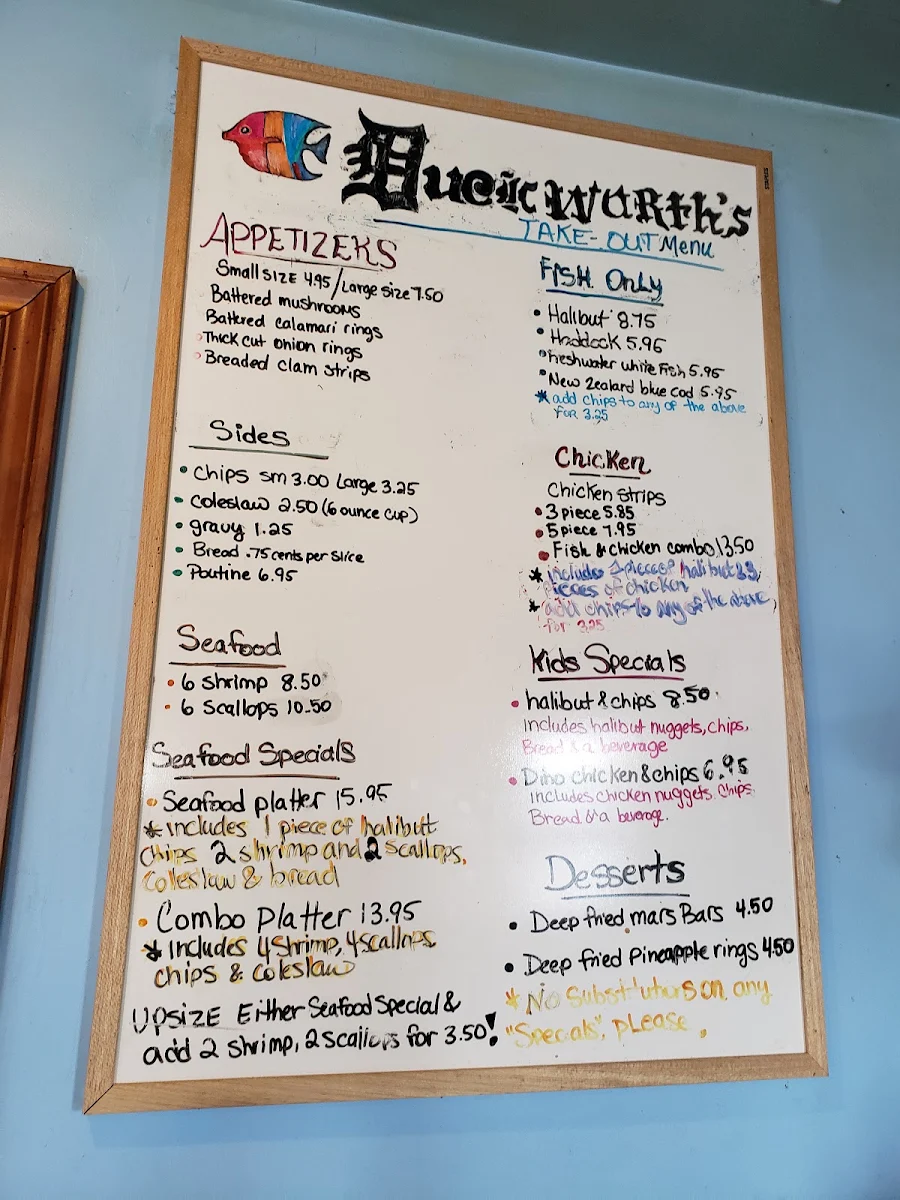 Duckworth's
TAKE-OUT Menu
APPETIZERS
Small SIZE 4.95/Large size 7.50
Battered mushrooms
Battered calamari rings
Thick cut onion rings
Breaded clam strips
Sides
• Chips sm 3.00 Large 3.25
• coleslaw 2.50 (6 ounce cup)
• gravy 1.25
• Bread .75 cents per slice
• Poutine 6.95
Seafood
• 6 shrimp 8.50
• 6 Scallops 10.50
Seafood Specials
• Seafood platter 15.95
* includes 1 piece of halibut
chips 2 shrimp and 2 scallops,
coleslaw & bread
• Combo Platter 13.95
* includes 4 shrimp, 4 scallops,
chips & coleslaw
UPSIZE Either Seafood Special &
add 2 shrimp, 2 scallops for 3.50!
FISH Only
• Halibut 8.75
• Haddock 5.95
• freshwater white Fish 5.95
• New Zealand blue cod 5.95
* add chips to any of the above
for 3.25
Chicken
Chicken strips
• 3 piece 5.85
• 5 piece 7.95
• Fish & chicken combo 13.50
* includes 1 piece of halibut & 3
pieces of chicken
* add chips to any of the above,
for 3.25
Kids Specials
• halibut & chips 8.50
includes halibut nuggets, chips,
Bread & a beverage
• Dino chicken & chips 6.95
includes chicken nuggets, chips
Bread & a beverage.
Desserts
• Deep fried mars Bars 4.50
• Deep fried Pineapple rings 4.50
* No Substitutions on any
"Specials", please.